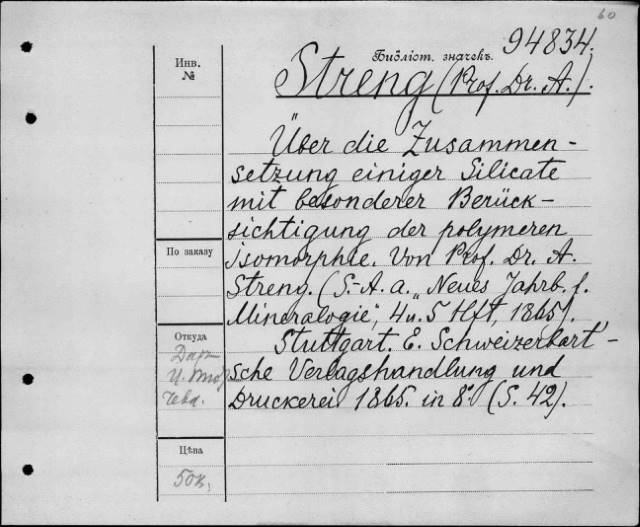 60
Библіот. значекъ. 94834.
Инв.
№
Streng (Prof. Dr. A.).
Über die Zusammen-
setzung einiger Silicate
mit besonderer Berück-
sichtigung der polymeren
isomorphie. Von Prof. Dr. A.
Streng. (S.-A. a. „Neues Jahrb. f.
Mineralogie", 4 u. 5 Hft, 1865).
Stuttgart. E. Schweizerbart'-
sche Verlagshandlung und
Druckerei 1865. in 8°. (S. 42).
По заказу
Откуда
Дар
И.
Цѣна
50к.